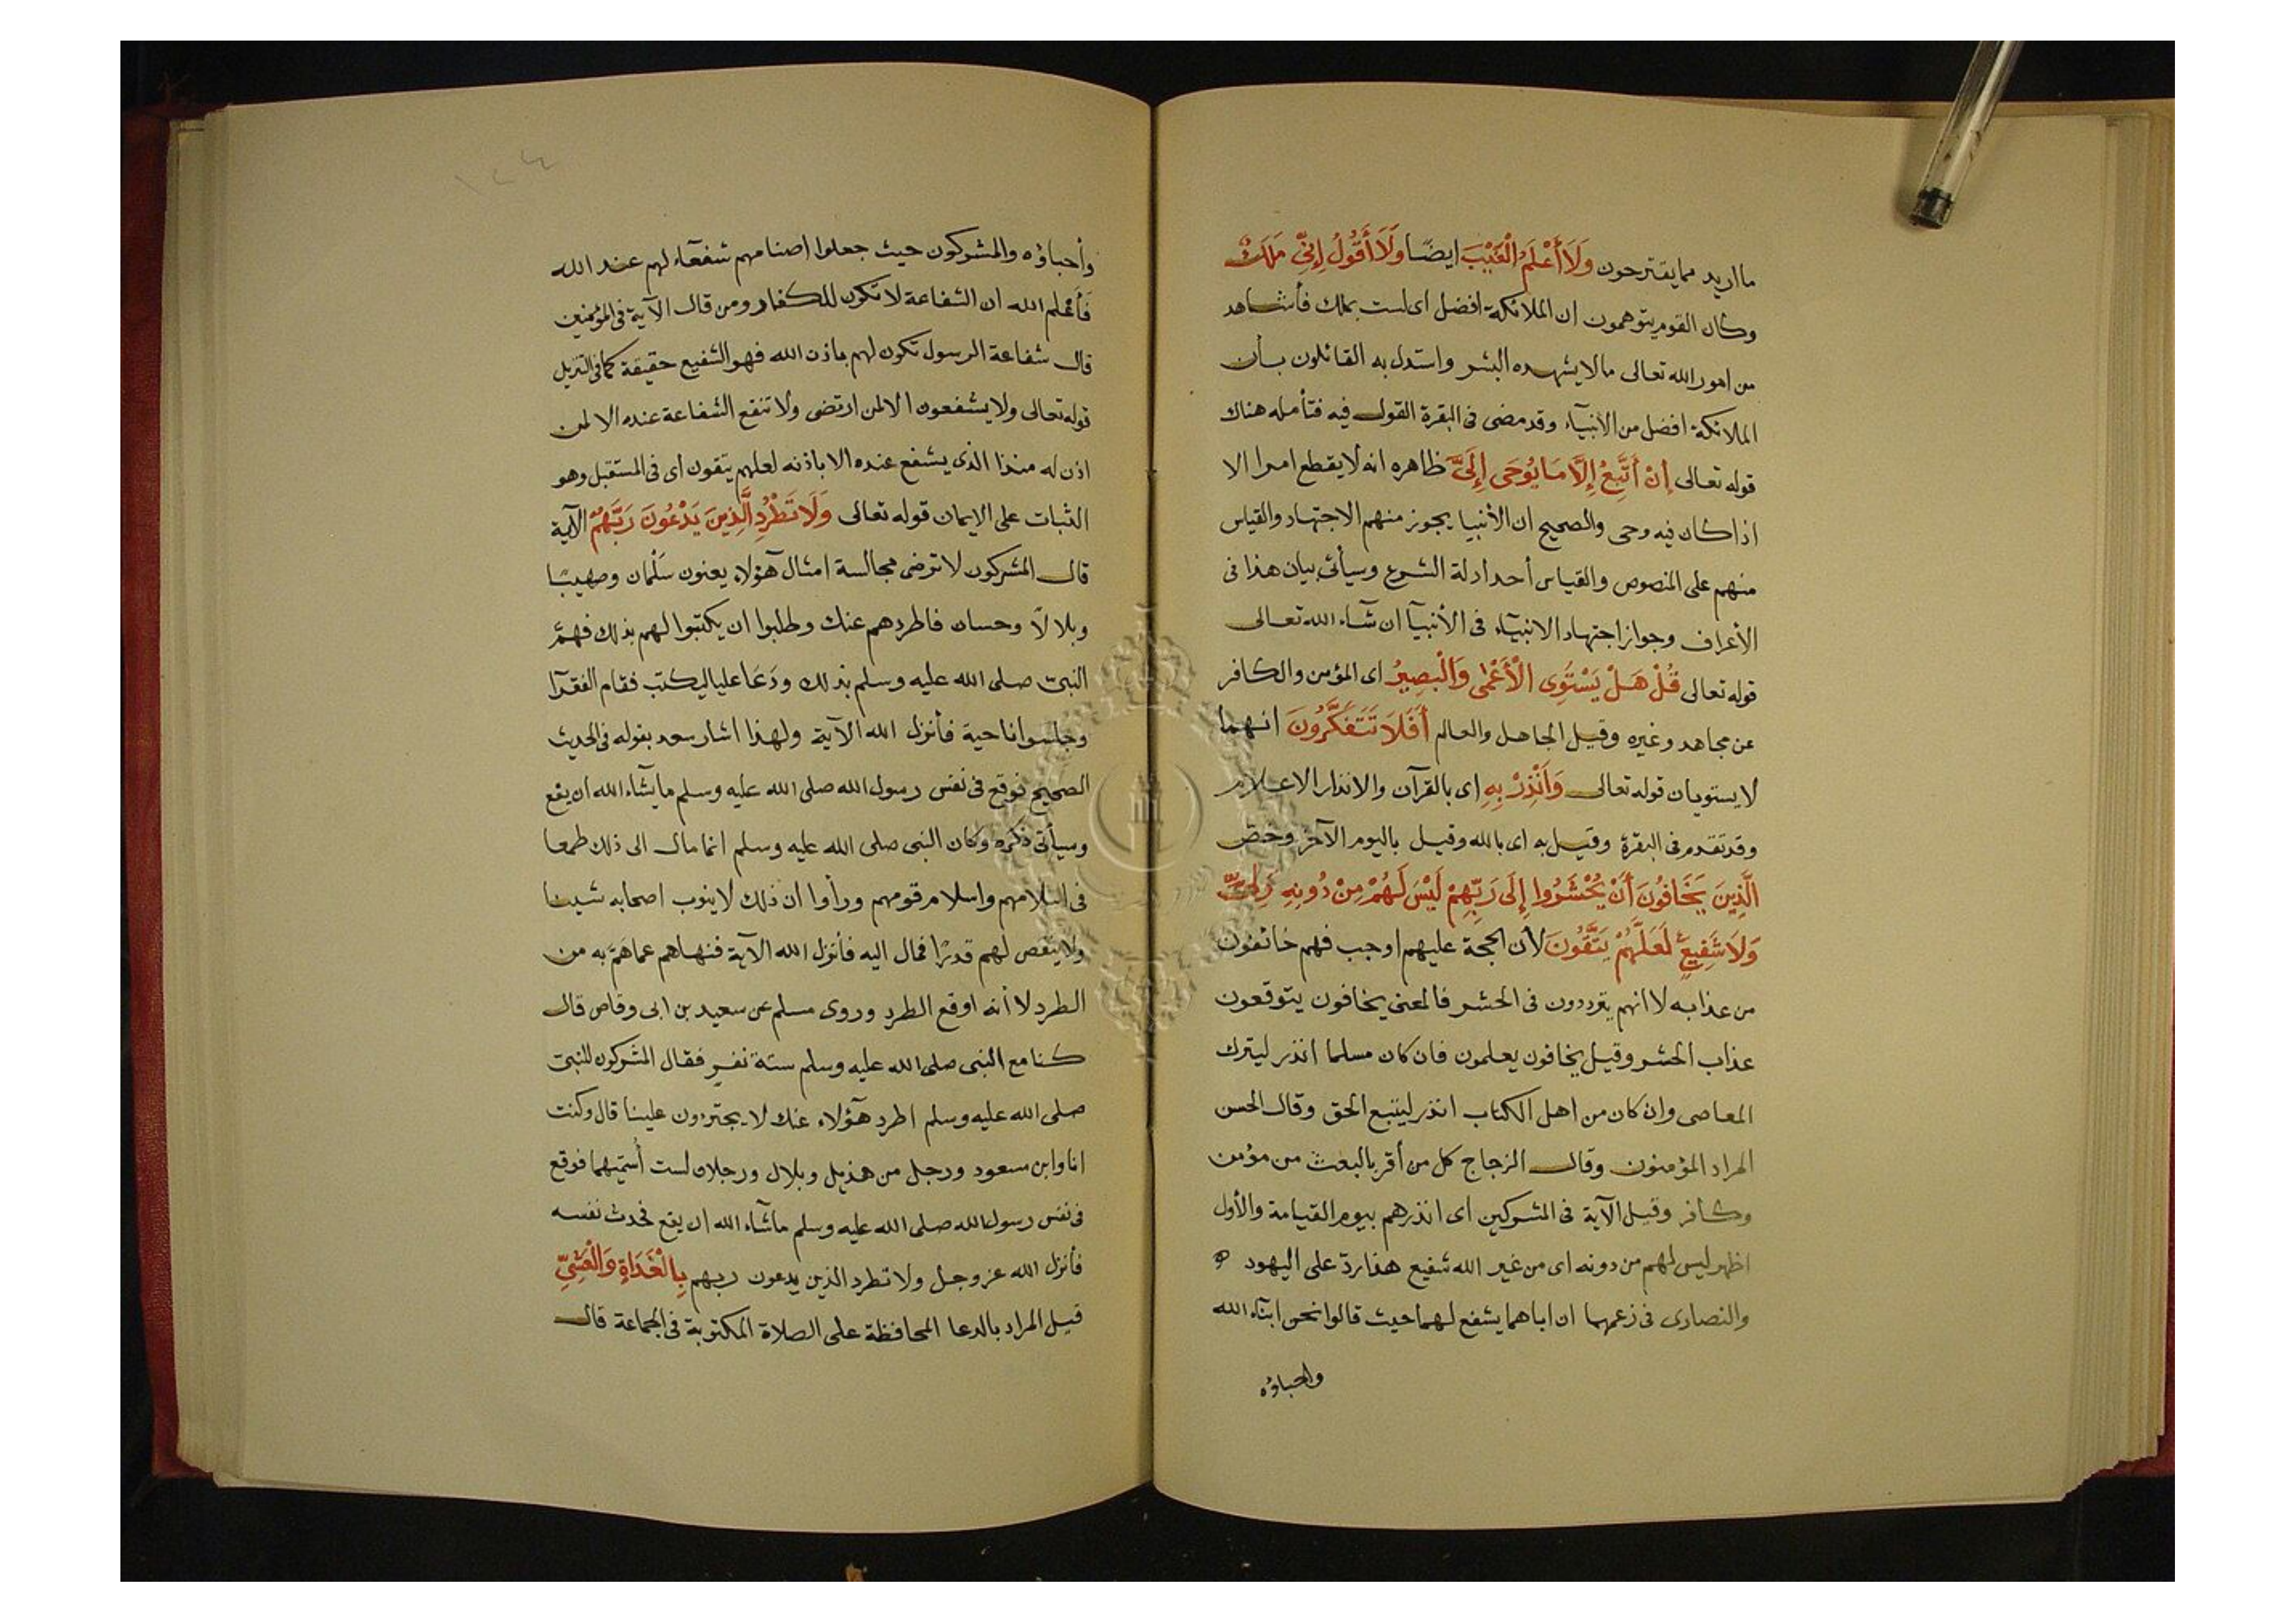 ما اريد مما يقترحون وَلَا أَعْلَمُ الْغَيْبَ ايضًا وَلَا أَقُولُ إِنِّي مَلَكٌ
وكان القوم يتوهمون ان الملائكة افضل اى لست بملك فأشاهد
من امور الله تعالى ما لا يشهده البشر واستدل به القائلون بأن
الملائكة افضل من الانبيآء وقد مضى فى البقرة القول فيه فتأمله هناك
قوله تعالى إِنْ أَتَّبِعُ إِلَّا مَا يُوحَى إِلَيَّ ظاهره انه لا يقطع امرا الا
اذا كان فيه وحى والصحيح ان الأنبيا يجوز منهم الاجتهاد والقياس
منهم على المنصوص والقياس أحد ادلة الشرع وسيأتى بيان هذا فى
الأعراف وجواز اجتهاد الانبيآء فى الأنبيآ ان شآء الله تعالى
قوله تعالى قُلْ هَلْ يَسْتَوِى الْأَعْمٰى وَالْبَصِيرُ اى المؤمن والكافر
عن مجاهد وغيره وقيل الجاهل والعالم أَفَلَا تَتَفَكَّرُونَ انهما
لا يستويان قوله تعالى وَأَنْذِرْ بِهِ اى بالقرآن والانذار الاعلام
وقد تقدم فى البقرة وقيل به اى بالله وقيل باليوم الآخر وخص
الَّذِينَ يَخَافُونَ أَنْ يُحْشَرُوا إِلَى رَبِّهِمْ لَيْسَ لَهُمْ مِنْ دُونِهِ وَلِيٌّ
وَلَا شَفِيعٌ لَعَلَّهُمْ يَتَّقُونَ لأن الحجة عليهم اوجب فهم خائفون
من عذابه لا انهم يترددون فى الحشر فالمعنى يخافون يتوقعون
عذاب الحشر وقيل يخافون يعلمون فان كان مسلما انذر ليترك
المعاصى وان كان من اهل الكتاب انذر ليتبع الحق وقال الحسن
المراد المؤمنون وقال الزجاج كل من أقر بالبعث من مؤمن
وكافر وقيل الآية فى المشركين اى انذرهم بيوم القيامة والأول
اظهر ليس لهم من دونه اى من غير الله شفيع هذا ردّ على اليهود
والنصارى فى زعمهما ان اباهما يشفع لهما حيث قالوا نحن ابنآء الله
واحباؤه
١٢٤
وأحباؤه والمشركون حيث جعلوا اصنامهم شفعآء لهم عند الله
فأعلم الله ان الشفاعة لا تكون للكفار ومن قال الآية فى المؤمنين
قال شفاعة الرسول تكون لهم باذن الله فهو الشفيع حقيقة كما فى التنزيل
قوله تعالى ولا يشفعون الا لمن ارتضى ولا تنفع الشفاعة عنده الا لمن
اذن له منذا الذى يشفع عنده الا باذنه لعلهم يتقون اى فى المستقبل وهو
الثبات على الايمان قوله تعالى وَلَا تَطْرُدِ الَّذِينَ يَدْعُونَ رَبَّهُمْ الآية
قال المشركون لا نرضى مجالسة امثال هؤلاء يعنون سَلْمان وصهيبًا
وبلالاً وحسان فاطردهم عنك وطلبوا ان يكتبوا لهم بذلك فهمَّ
النبى صلى الله عليه وسلم بذلك ودَعَا عليا ليكتب فقام الفقرآ
وجلسوا ناحية فأنزل الله الآية ولهذا اشار سعد بقوله فى الحديث
الصحيح فوقع فى نفس رسول الله صلى الله عليه وسلم ما شآء الله ان يقع
وسيأتى ذكره وكان النبى صلى الله عليه وسلم انما مال الى ذلك طمعا
فى اسلامهم واسلام قومهم ورأوا ان ذلك لا ينوب اصحابه شيئا
ولا ينقص لهم قدرًا فمال اليه فأنزل الله الآية فنهاهم عما همّ به من
الطرد لا أنه اوقع الطرد وروى مسلم عن سعيد بن ابى وقاص قال
كنا مع النبى صلى الله عليه وسلم ستة نفر فقال المشركون للنبى
صلى الله عليه وسلم اطرد هآؤلاء عنك لا يجترءون علينا قال وكنت
انا وابن مسعود ورجل من هذيل وبلال ورجلان لست أسميهما فوقع
فى نفس رسول الله صلى الله عليه وسلم ما شآء الله ان يقع فحدث نفسه
فأنزل الله عز وجل ولا تطرد الذين يدعون ربهم بِالْغَدَاةِ وَالْعَشِيِّ
قيل المراد بالدعا المحافظة على الصلاة المكتوبة فى الجماعة قال